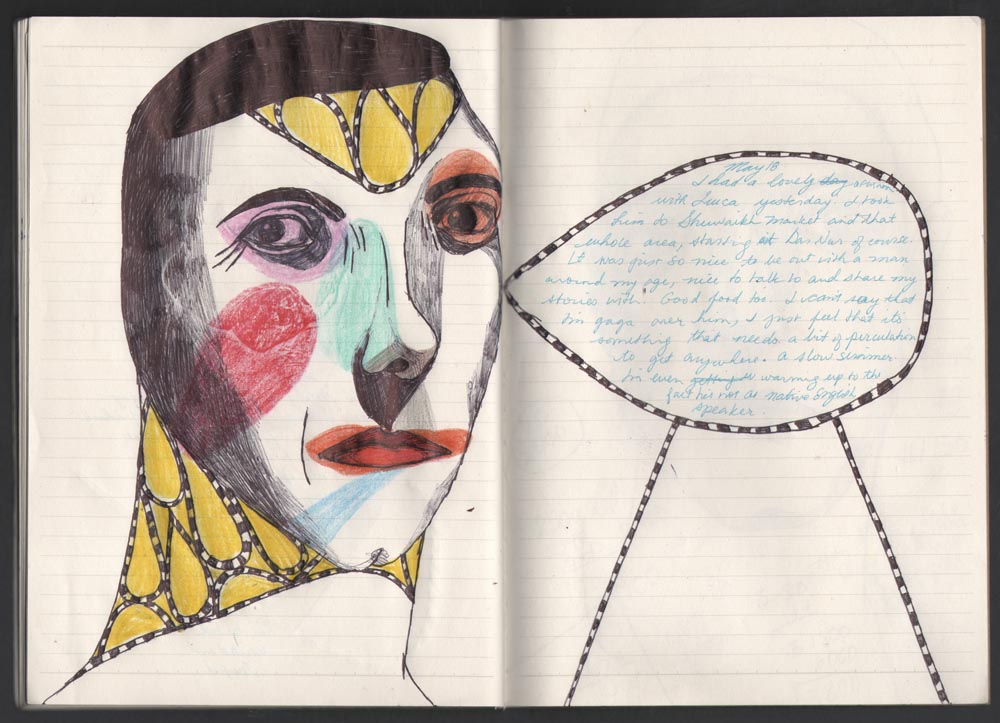 May 18
I had a lovely day afternoon
with Luca yesterday. I took
him to Shuwaikh Market and that
whole area, starting at Dar Nur of course.
It was just so nice to be out with a man
around my age, nice to talk to and share my
stories with. Good food too. I can't say that
I'm gaga over him, I just feel that it's
something that needs a bit of perculation
to get anywhere. A slow simmer.
I'm even getting warming up to the
fact he's not a native English
speaker.